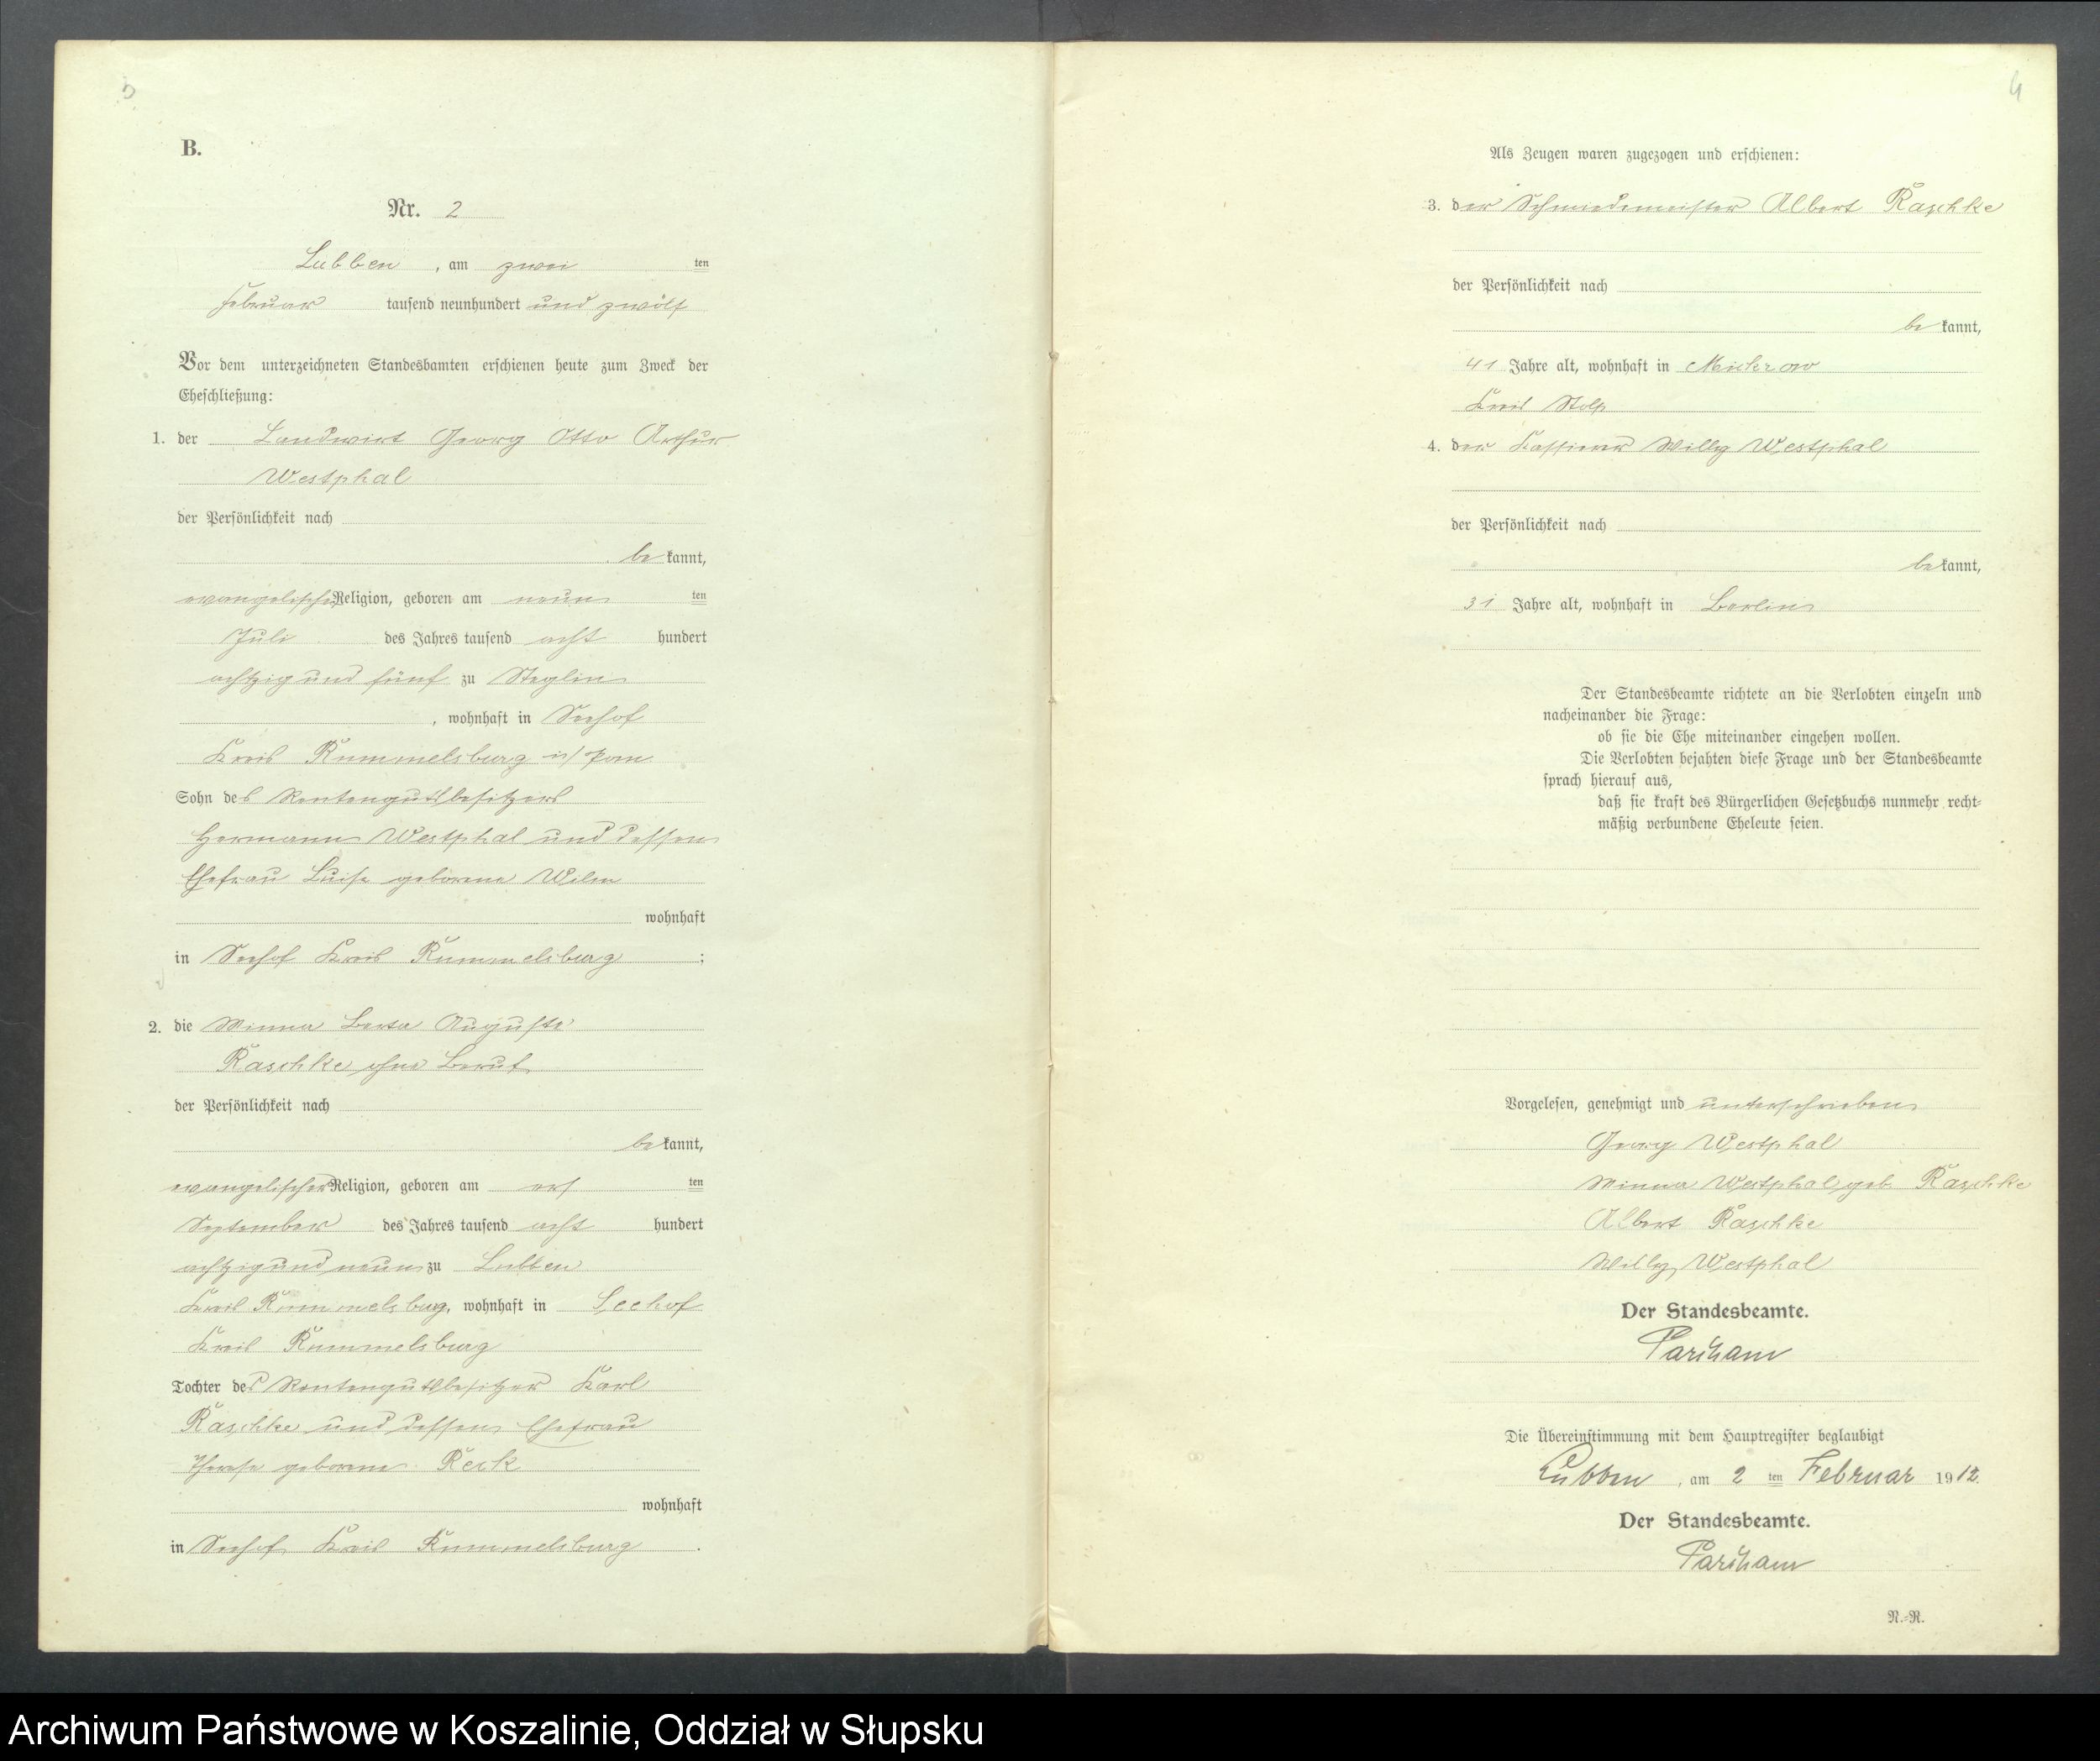 B.
Nr. 2
Lubben, am zwei ten
Februar tausend neunhundert und zwölf
Vor dem unterzeichneten Standesbamten erschienen heute zum Zweck der
Eheschließung:
1. der Landwirt Georg Otto Arthur
Westphal
der Persönlichkeit nach
bekannt,
evangelischer Religion, geboren am neun ten
Juli des Jahres tausend acht hundert
achtzig und fünf zu Steglin
, wohnhaft in Seehof
Kreis Rummelsburg i/ Pom
Sohn des Rentengutsbesitzers
Hermann Westphal und dessen
Ehefrau Luise geborene Wilm
wohnhaft
in Seehof Kreis Rummelsburg ;
2. die Minna Berta Auguste
Raschke ohne Beruf
der Persönlichkeit nach
bekannt,
evangelischer Religion, geboren am ten
September des Jahres tausend acht hundert
achtzig und neun zu Lubben
Kreis Rummelsburg, wohnhaft in Seehof
Kreis Rummelsburg
Tochter des Rentengutsbesitzer Karl
Raschke und dessen Ehefrau
Therese geborene Reck
wohnhaft
in Seehof Kreis Rummelsburg .
4
Als Zeugen waren zugezogen und erschienen:
3. der Schmiedemeister Albert Raschke
der Persönlichkeit nach
bekannt,
41 Jahre alt, wohnhaft in Mickrow
Kreis Stolp
4. der Kassierer Willy Westphal
der Persönlichkeit nach
bekannt,
31 Jahre alt, wohnhaft in Berlin
Der Standesbeamte richtete an die Verlobten einzeln und
nacheinander die Frage:
ob sie die Ehe miteinander eingehen wollen.
Die Verlobten bejahten diese Frage und der Standesbeamte
sprach hierauf aus,
daß sie kraft des Bürgerlichen Gesetzbuchs nunmehr recht-
mäßig verbundene Eheleute seien.
Vorgelesen, genehmigt und unterschrieben
Georg Westphal
Minna Westphal geb. Raschke
Albert Raschke
Willy Westphal
Der Standesbeamte.
Die Übereinstimmung mit dem Hauptregister beglaubigt
Lubben, am 2 ten Februar 1912.
Der Standesbeamte.
N.-R.
Archiwum Państwowe w Koszalinie, Oddział w Słupsku